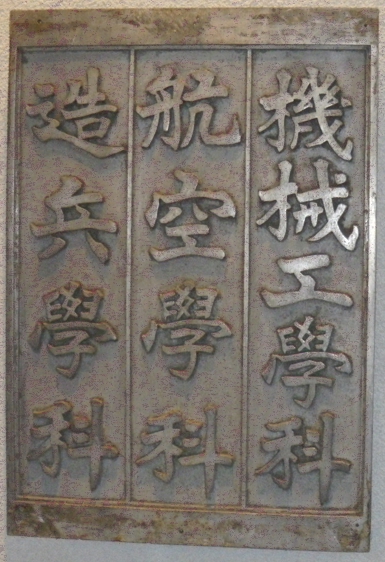 機械工學科
航空學科
造兵學科